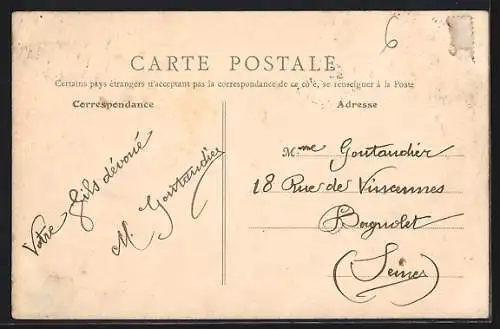 6
CARTE POSTALE
Certains pays étrangers n'acceptent pas la correspondance de ce côté, se renseigner à la Poste
Correspondance
Adresse
Votre fils dévoué
M. Goutaudier
Mme Goutaudier
18 Rue de Vincennes
Bagnolet
(Seine)